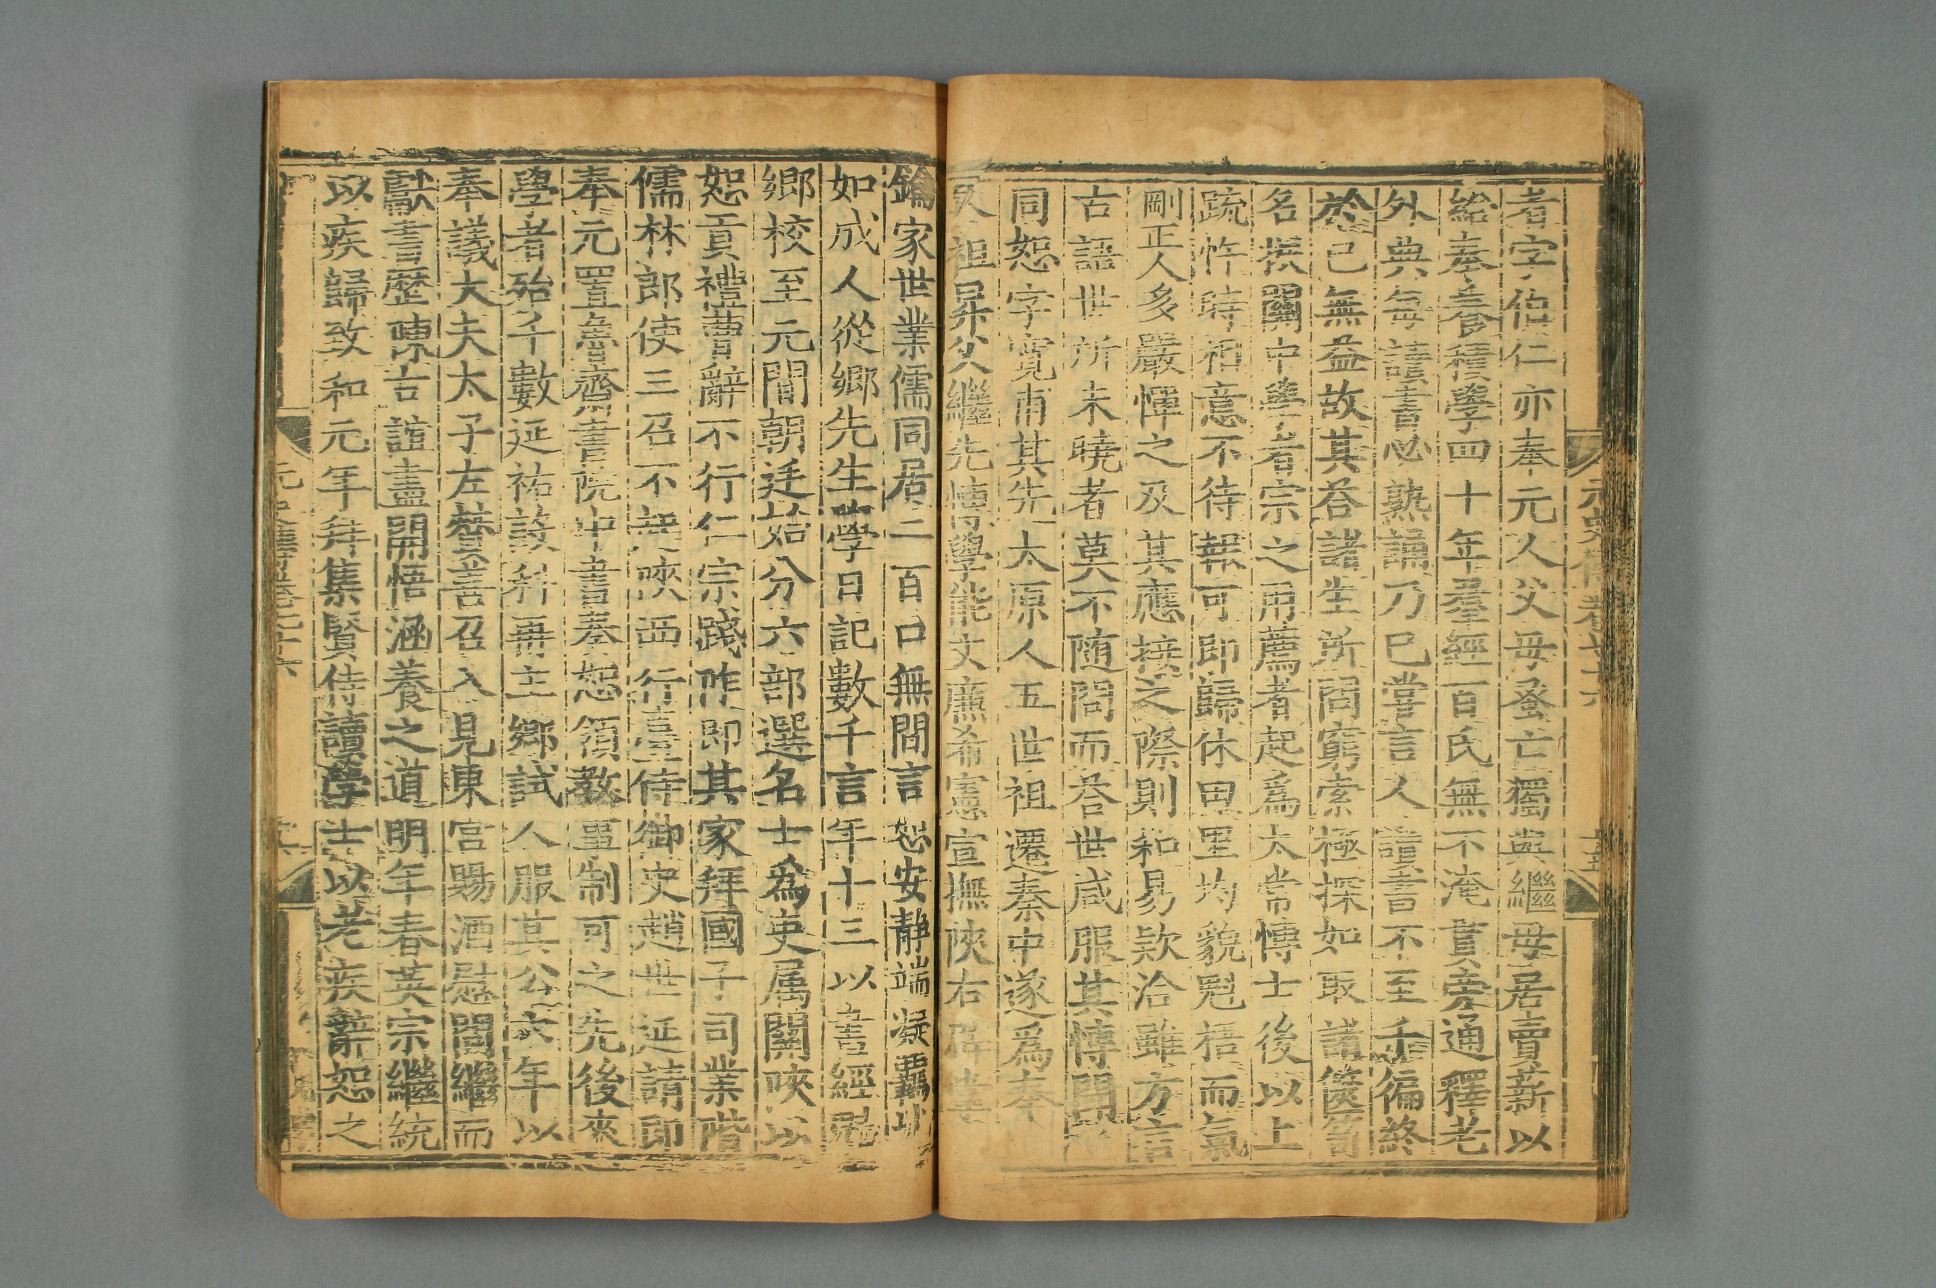 者字伯仁亦奉元人父母蚤亡獨與繼母居賣薪以
給奉養積學四十年羣經百氏無不淹貫旁通釋老
外典每讀書必熟誦乃已嘗言人讀書不至千徧終
於己無益故其荅諸生所問窮索極探如取諸篋笥
名振關中學者宗之用薦者起爲太常博士後以上
疏忤時相意不待報可即歸休田里均貌魁梧而氣
剛正人多嚴憚之及其應接之際則和易欵洽雖方言
古語世所未曉者莫不随問而荅世咸服其博聞
同恕字寛甫其先太原人五世祖遷秦中遂爲奉
祖昇父繼先博學能文廉希憲宣撫陝右辟掌
鑰家世業儒同居二百口無間言恕安静端凝羈丱
如成人從鄉先生學日記數千言年十三以書經魁
鄉校至元間朝廷始分六部選名士爲吏属關陜以
恕貢禮曹辭不行仁宗踐阼即其家拜國子司業階
儒林郎使三召不起陜西行臺侍御史趙世延請即
奉元置魯齋書院中書奏恕領教事制可之先後來
學者殆千數延祐設科再主鄉試人服其公六年以
奉議大夫太子左賛善召入見東宮賜酒慰問繼而
獻書歷陳古誼盡開悟涵養之道明年春英宗繼統
以疾歸致和元年拜集賢侍讀學士以老疾辭恕之